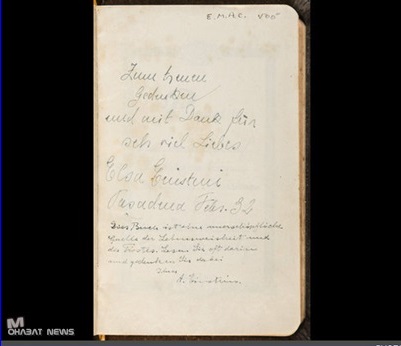 E.M.A.C. 
Zum treuen
Gedenken
und mit Dank für
sehr viel Liebes
Elsa Einstein
Pasadena Feb. 32
Dies Buch ist eine unerschöpfliche
Quelle der Lebensweisheit und
des Trostes. Lesen Sie oft darin
und gedenken Sie dabei
Ihres
A. Einstein.
MOHABAT NEWS